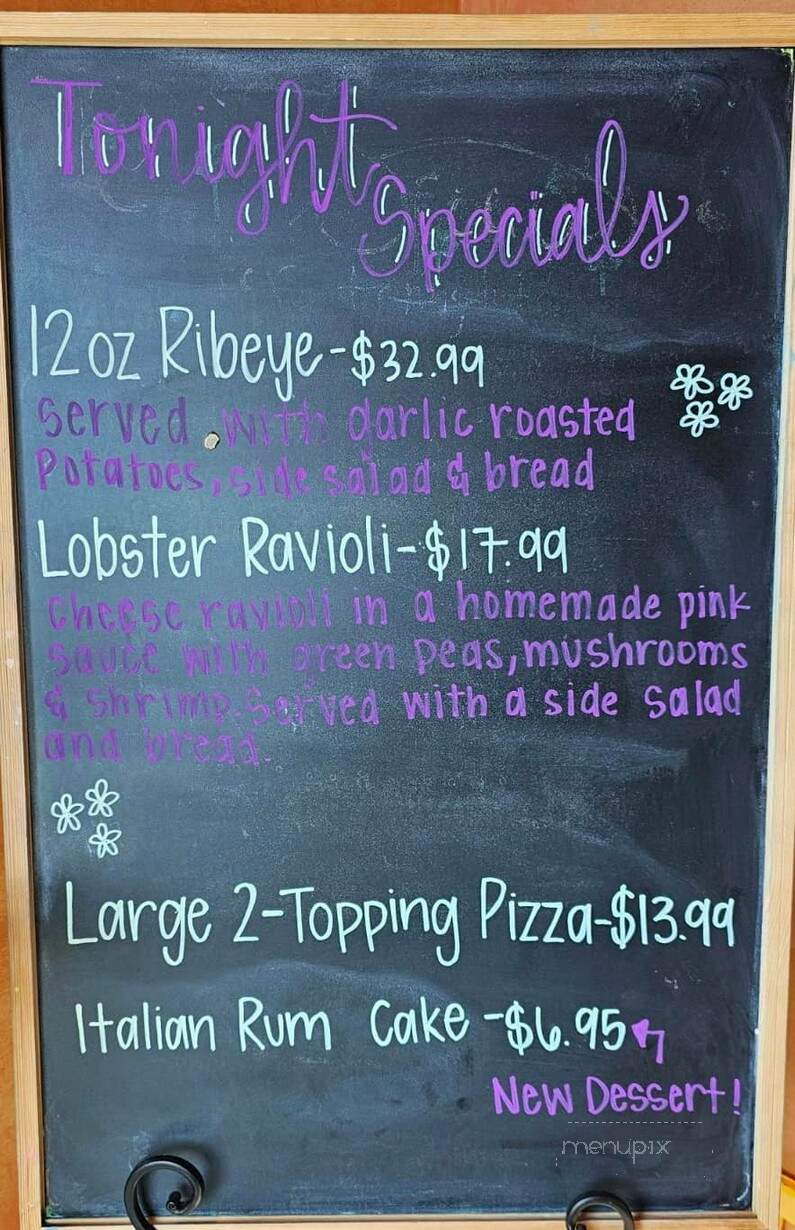 Tonight
Specials
12 oz Ribeye-$32.99
served with garlic roasted
Potatoes, side salad & bread
Lobster Ravioli-$17.99
cheese ravioli in a homemade pink
sauce with green peas, mushrooms
& shrimp. Served with a side salad
and bread.
Large 2-Topping Pizza-$13.99
Italian Rum Cake -$6.95
New Dessert!
menupix